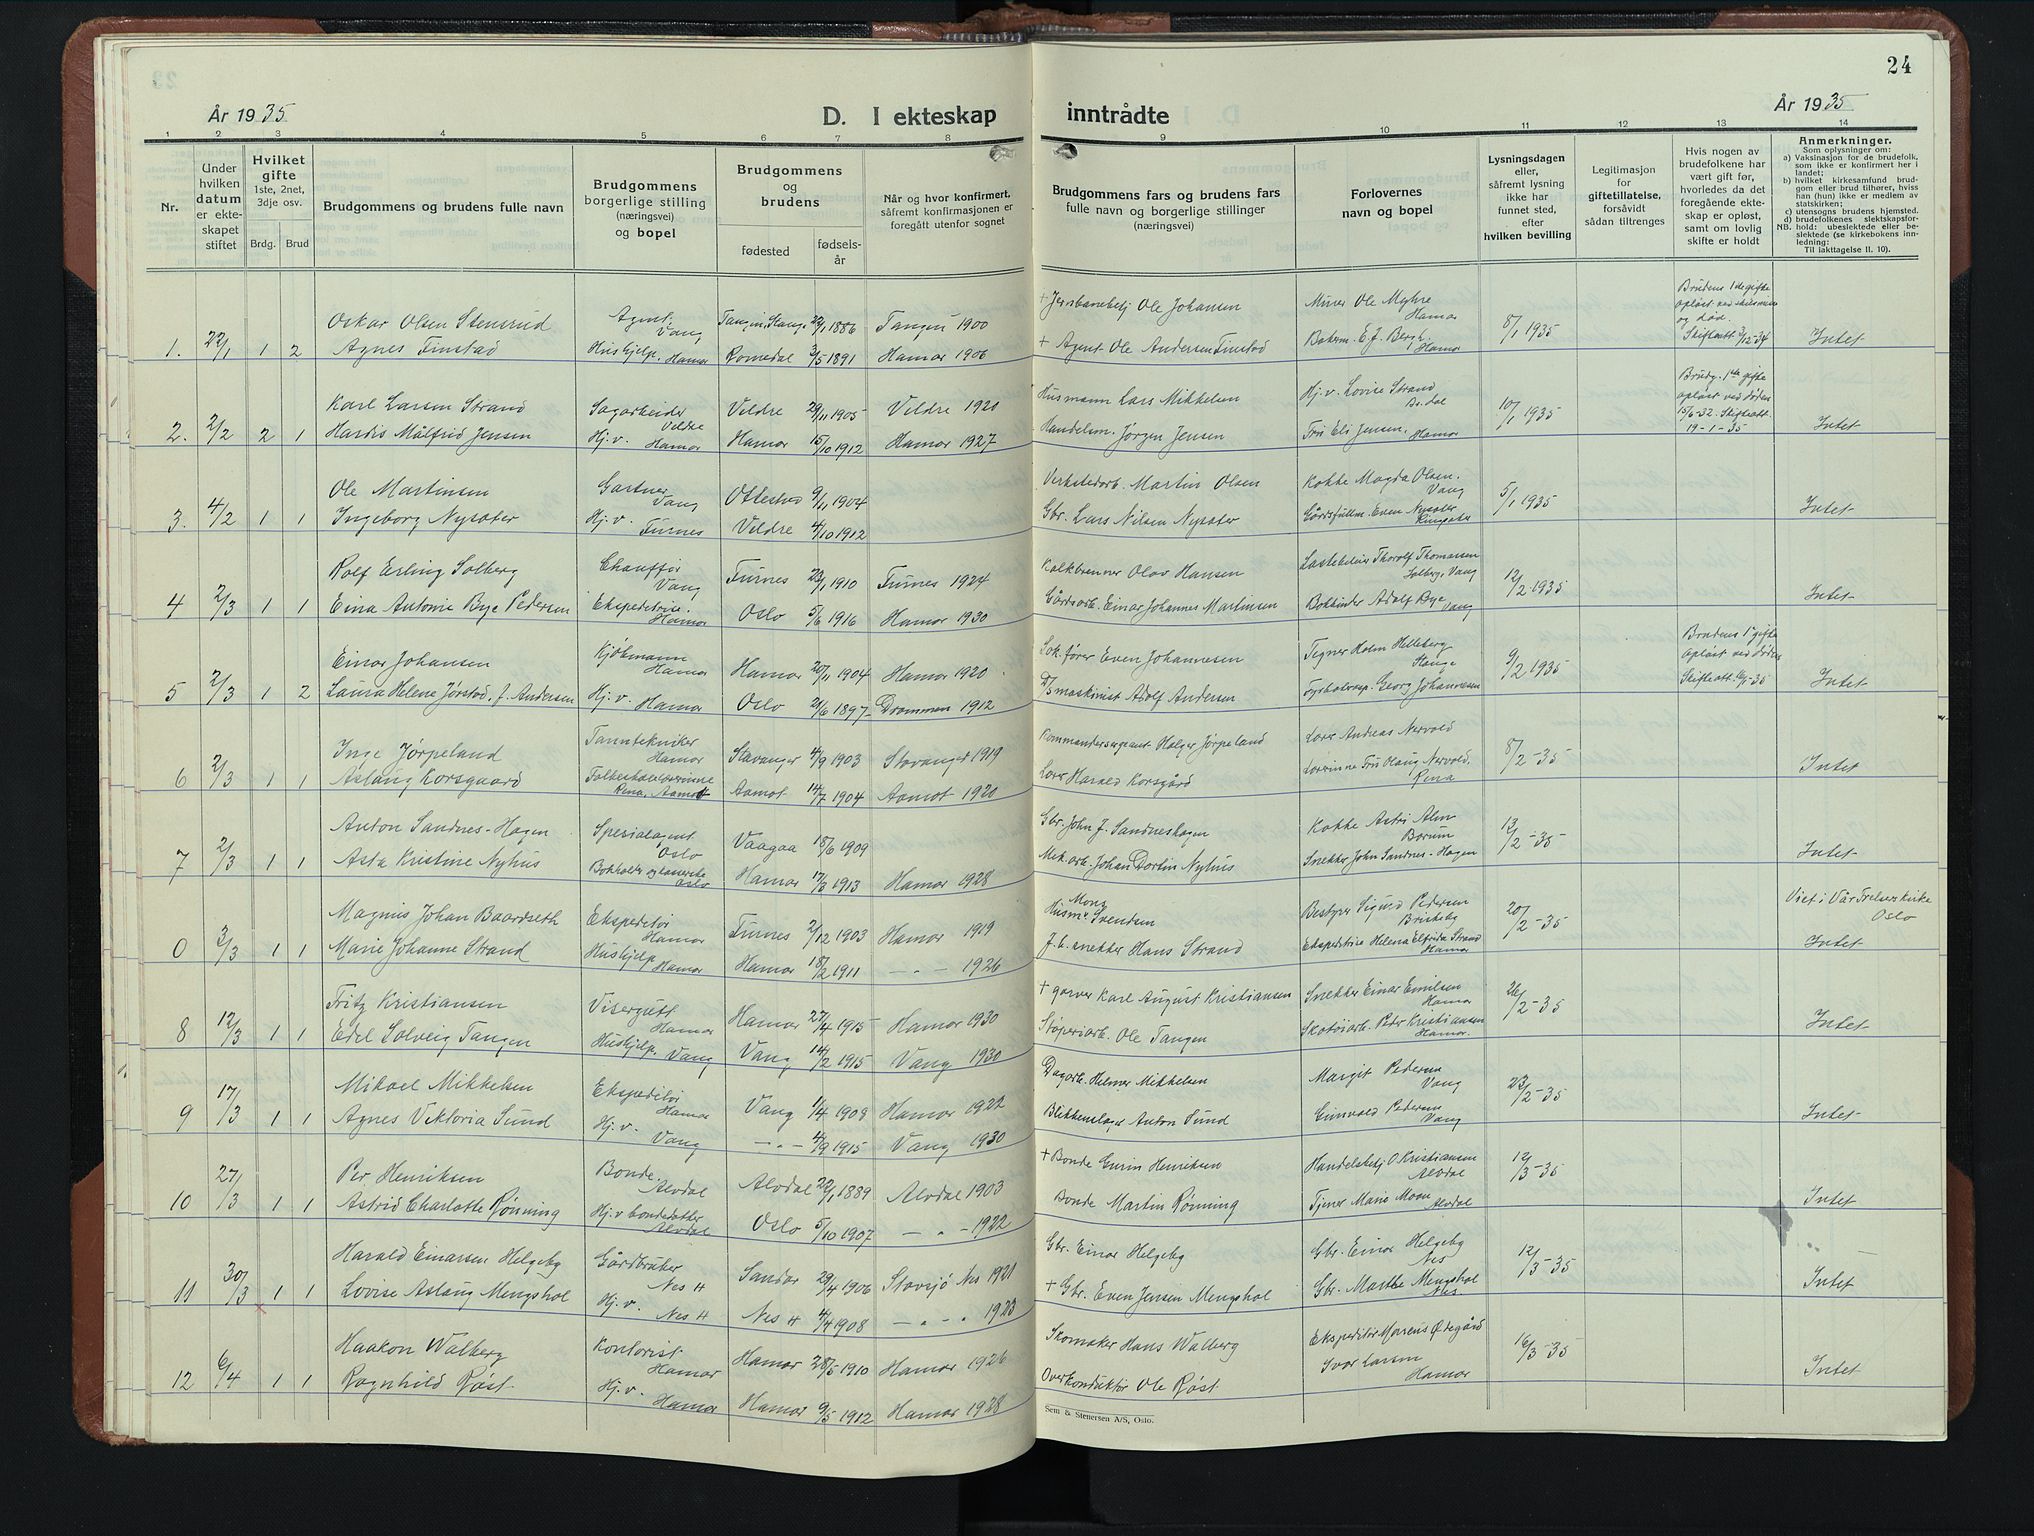 24
År 1935
D. I ekteskap inntrådte
År 1935
1 2 3 4 5 6 7 8 9 10 11 12 13 14
Nr.
Under hvilken datum er ekteskapet stiftet
Hvilket gifte 1ste, 2net, 3dje osv.
Brdg. Brud
Brudgommens og brudens fulle navn
Brudgommens borgerlige stilling (næringsvei) og bopel
Brudgommens og brudens
fødested
fødselsår
Når og hvor konfirmert, såfremt konfirmasjonen er foregått utenfor sognet
Brudgommens fars og brudens fars fulle navn og borgerlige stillinger (næringsvei)
Forlovernes navn og bopel
Lysningsdagen eller, såfremt lysning ikke har funnet sted, efter hvilken bevilling
Legitimasjon for giftetillatelse, forsåvidt sådan tiltrenges
Hvis nogen av brudefolkene har vært gift før, hvorledes da det foregående ekteskap er opløst, samt om lovlig skifte er holdt
Anmerkninger.
Som oplysninger om:
a) Vaksinasjon for de brudefolk, som ikke er konfirmert her i landet;
b) hvilket kirkesamfund brudgom eller brud tilhører, hviss han (hun) ikke er medlem av statskirken;
c) utensogns brudens hjemsted.
d) brudefolkenes slektskapsforhold: ubeslektede eller beslektede (se kirkebokens innledning:
NB.
Til Iakttagelse II. 10).
1. 22/1 1 2
Oskar Olsen Stensrud Agent Vang Tangen, Stange 22/1 1886 Tangen 1900 + Jernbanebetj Ole Johansen Ole Myhre Hamar 8/1 1935 Brudens 1ste gifte opløst ved skilsmisse og død. Skifteatt
Agnes Finstad Hushjelp, Hamar Romedal 3/5 1891 Hamar 1906 + Agent Ole Andersen Finstad E. J. Bergh. Hamar Intet
2. 2/2 2 1
Karl Larsen Strand Sagarbeider Veldre Veldre 29/11 1905 Veldre 1920 Husmann Lars Mikkelsen Hj. v. Lovise Strand 10/1 1935 Brudg. 1ste gifte opløst ved døden 15/6-32. Skifteatt. 19-1-35
Hardis Målfrid Jensen Hj. v. Hamar Hamar 15/10 1912 Hamar 1927 Handelsm. Jørgen Jensen Fru Eli Jensen, Hamar Intet
3. 4/2 1 1
Ole Martinsen Gartner Vang Ottestad 9/11 1904 Verkstedarb. Martin Olsen Kokke Magda Olsen. Vang 5/1 1935
Ingeborg Nysæter Hj. v. Furnes Veldre 4/10 1912 Gbr. Lars Nilsen Nysæter Gårdsfullm. Even Nysæter Ringsaker Intet
4 2/3 1 1
Rolf Erling Solberg Chauffør Vang Furnes 23/1 1910 Furnes 1924 Kalkbrenner Olav Hansen Lastebileier Thorolf Thomassen Solberg, Vang 12/2-1935
Eina Antonie Bye Pedersen Ekspeditrise. Hamar Oslo 5/6 1916 Hamar 1930 Gårdsarb. Einar Johannes Martinsen Bokbinder Adolf Bye Vang Intet
5 2/3 1 2
Einar Johansen Kjøbmann Hamar Hamar 20/11 1904 Hamar 1920 Sak. fører Even Johannesen Tegner Helleberg Stange 9/2 1935 Brudens 1ste gifte opløst ved døden Skifteatt
Laura Helene Jørstad, f. Andersen Hj. v. Hamar Oslo 21/6 1897 Drammen 1912 D/S maskinist Adolf Andersen Georg Johannesen Intet
6 2/3 1 1
Inge Jørpeland Tanntekniker Hamar Stavanger 4/9 1903 Stavanger 1919 Kommandersergeant Holger Jørpeland Lærer Andreas Nervold 8/2-35
Aslaug Korsgaard Rena, Aamot Aamot 14/7 1904 Aamot 1920 Lærer Harald Korsgård Lærerinne Fru Olaug Nervold, Rena Intet
7 2/3 1 1
Anton Sandnes-Hagen Spesialagent Oslo Vaagaa 18/6 1909 Gbr. John J. Sandneshagen Kokke Astri Alm Bærum 13/2-35
Asta Kristine Nyhus Oslo Hamar 17/3 1913 Hamar 1928 Mek. arb. Johan Dortin Nyhus Snekker John Sandnes-Hagen Intet
0 3/3 1 1
Magnus Johan Baardseth Ekspeditør Hamar Furnes 2/12 1903 Hamar 1919 Husm. Svendsen Bestyrer Sigurd Pedersen Briskeby 20/2-35 Viet i Vår Frelsers kirke Oslo
Marie Johanne Strand Hushjelp Hamar Hamar 18/2 1911 — " — 1926 J.b. snekker Hans Strand Ekspeditrise Helena Elfrida Strand Hamar Intet
8 12/3 1 1
Fritz Kristiansen Visergutt Hamar Hamar 27/4 1915 Hamar 1930 + garver Karl August Kristiansen Snekker Einar Emilsen Hamar 26/2-35
Edel Solveig Tangen Hushjelp. Vang Vang 14/2 1915 Vang 1930 Støperiarb. Ole Tangen Skotøiarb. Peder Kristiansen Hamar. Intet
9 17/3 1 1
Mikael Mikkelsen Ekspeditør Hamar Vang 1/4 1908 Hamar 1922 Dagarb. Helmer Mikkelsen Margit Pedersen Vang 23/2-35
Agnes Viktoria Sund Hj. v. Vang — " — 4/9 1915 Vang 1930 Blikkenslager Anton Sund Gunvald Pedersen Vang Intet
10 27/3 1 1
Per Henriksen Bonde Alvdal Alvdal 22/1 1889 Alvdal 1903 + Bonde Henriksen Handelsbetj O Kristiansen Alvdal 12/3-35
Astrid Charlotte Rønning Hj. v bondedatter Alvdal Oslo 5/10 1907 — " — 1922 Bonde Martin Rønning Tjener Marie Moan Alvdal Intet
11 30/3 1 1
Harald Einarsen Helgeby Gårdbruker Nes H Sandar 29/4 1906 Stavsjø Nes 1921 Gbr. Einar Helgeby Gbr. Einar Helgeby Nes 12/3-35
Lovise Aslaug Mengshol Hj. v. Nes H Nes H 4/4 1908 — " — " 1923 + Gbr. Even Jensen Mengshol Gbr. Marthe Mengshol Nes Intet
12 6/4 1 1
Haakon Walberg Kontorist Hamar Hamar 28/5 1910 Hamar 1926 Skomaker Hans Walberg Ekspeditør Ødegård 16/3-35
Ragnhild Røst Hj. v. Hamar Hamar 9/5 1912 Hamar 1928 Overkonduktør Ole Røst Ivar Larsen Hamar Intet
Sem & Stenersen A/S, Oslo.